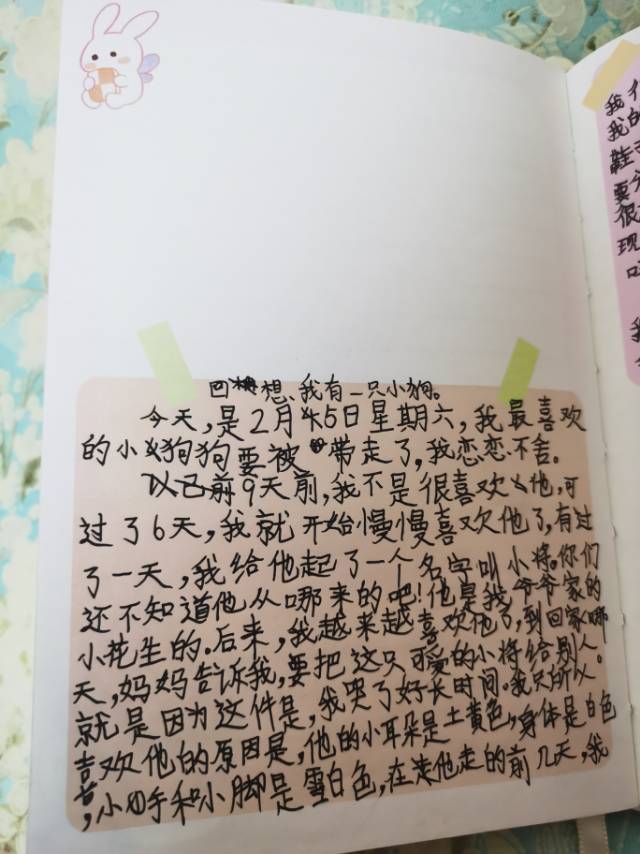 回想,我有一只小狗。
今天,是2月15日星期六,我最喜欢
的小狗狗要被带走了,我恋恋不舍。
以前9天前,我不是很喜欢他,可
过了6天,我就开始慢慢喜欢他了,有过
了一天,我给他起了一个名字叫小将。你们
还不知道他从哪来的吧!他是我爷爷家的
小花生的.后来,我越来越喜欢他了,到回家哪
天,妈妈告诉我,要把这只可爱的小将给别人。
就是因为这件是,我哭了好长时间。我只所以
喜欢他的原因是,他的小耳朵是土黄色,身体是白色
,小手和小脚是雪白色,在送他走的前几天,我
我
我的
鞋子
要
很
现
我